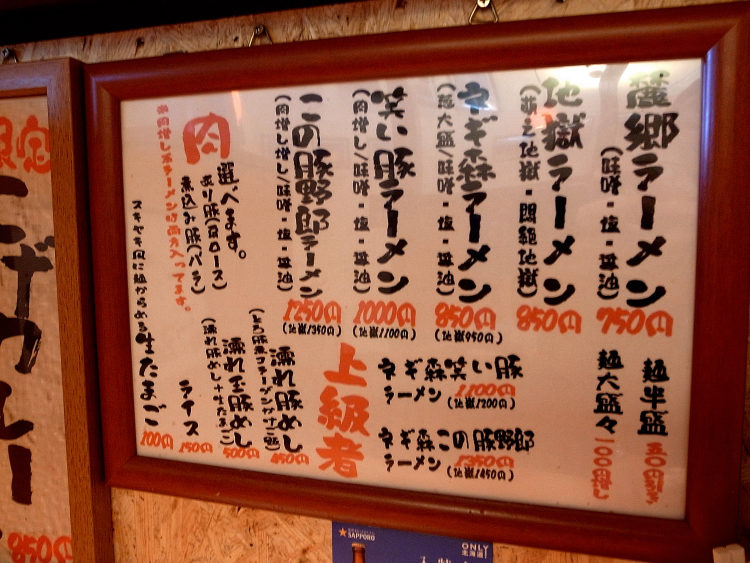 麓郷ラーメン
(味噌・塩・醤油)
750円
地獄ラーメン
(萌え地獄・悶絶地獄)
850円
ネギ森ラーメン
(葱大盛/味噌・塩・醤油)
850円
(地獄950円)
笑い豚ラーメン
(肉増し/味噌・塩・醤油)
1000円
(地獄1100円)
この豚野郎ラーメン
(肉増し増し/味噌・塩・醤油)
1250円
(地獄1350円)
肉
選べます。
炙り豚(肩ロース)
煮込み豚(バラ)
※肉増し系ラーメンは両方入ってます。
麺半盛
五〇円引き
麺大盛々
一〇〇円増し
上級者
ネギ森笑い豚
ラーメン
1100円
(地獄1200円)
ネギ森この豚野郎
ラーメン
1350円
(地獄1450円)
濡れ豚めし
450円
濡れ玉豚めし
(濡れ豚めし+生たまご)
500円
ライス
150円
スキヤキ風に麺からめる
生たまご
100円
限定
こげカレー
850円
SAPPORO
ONLY
北海道!